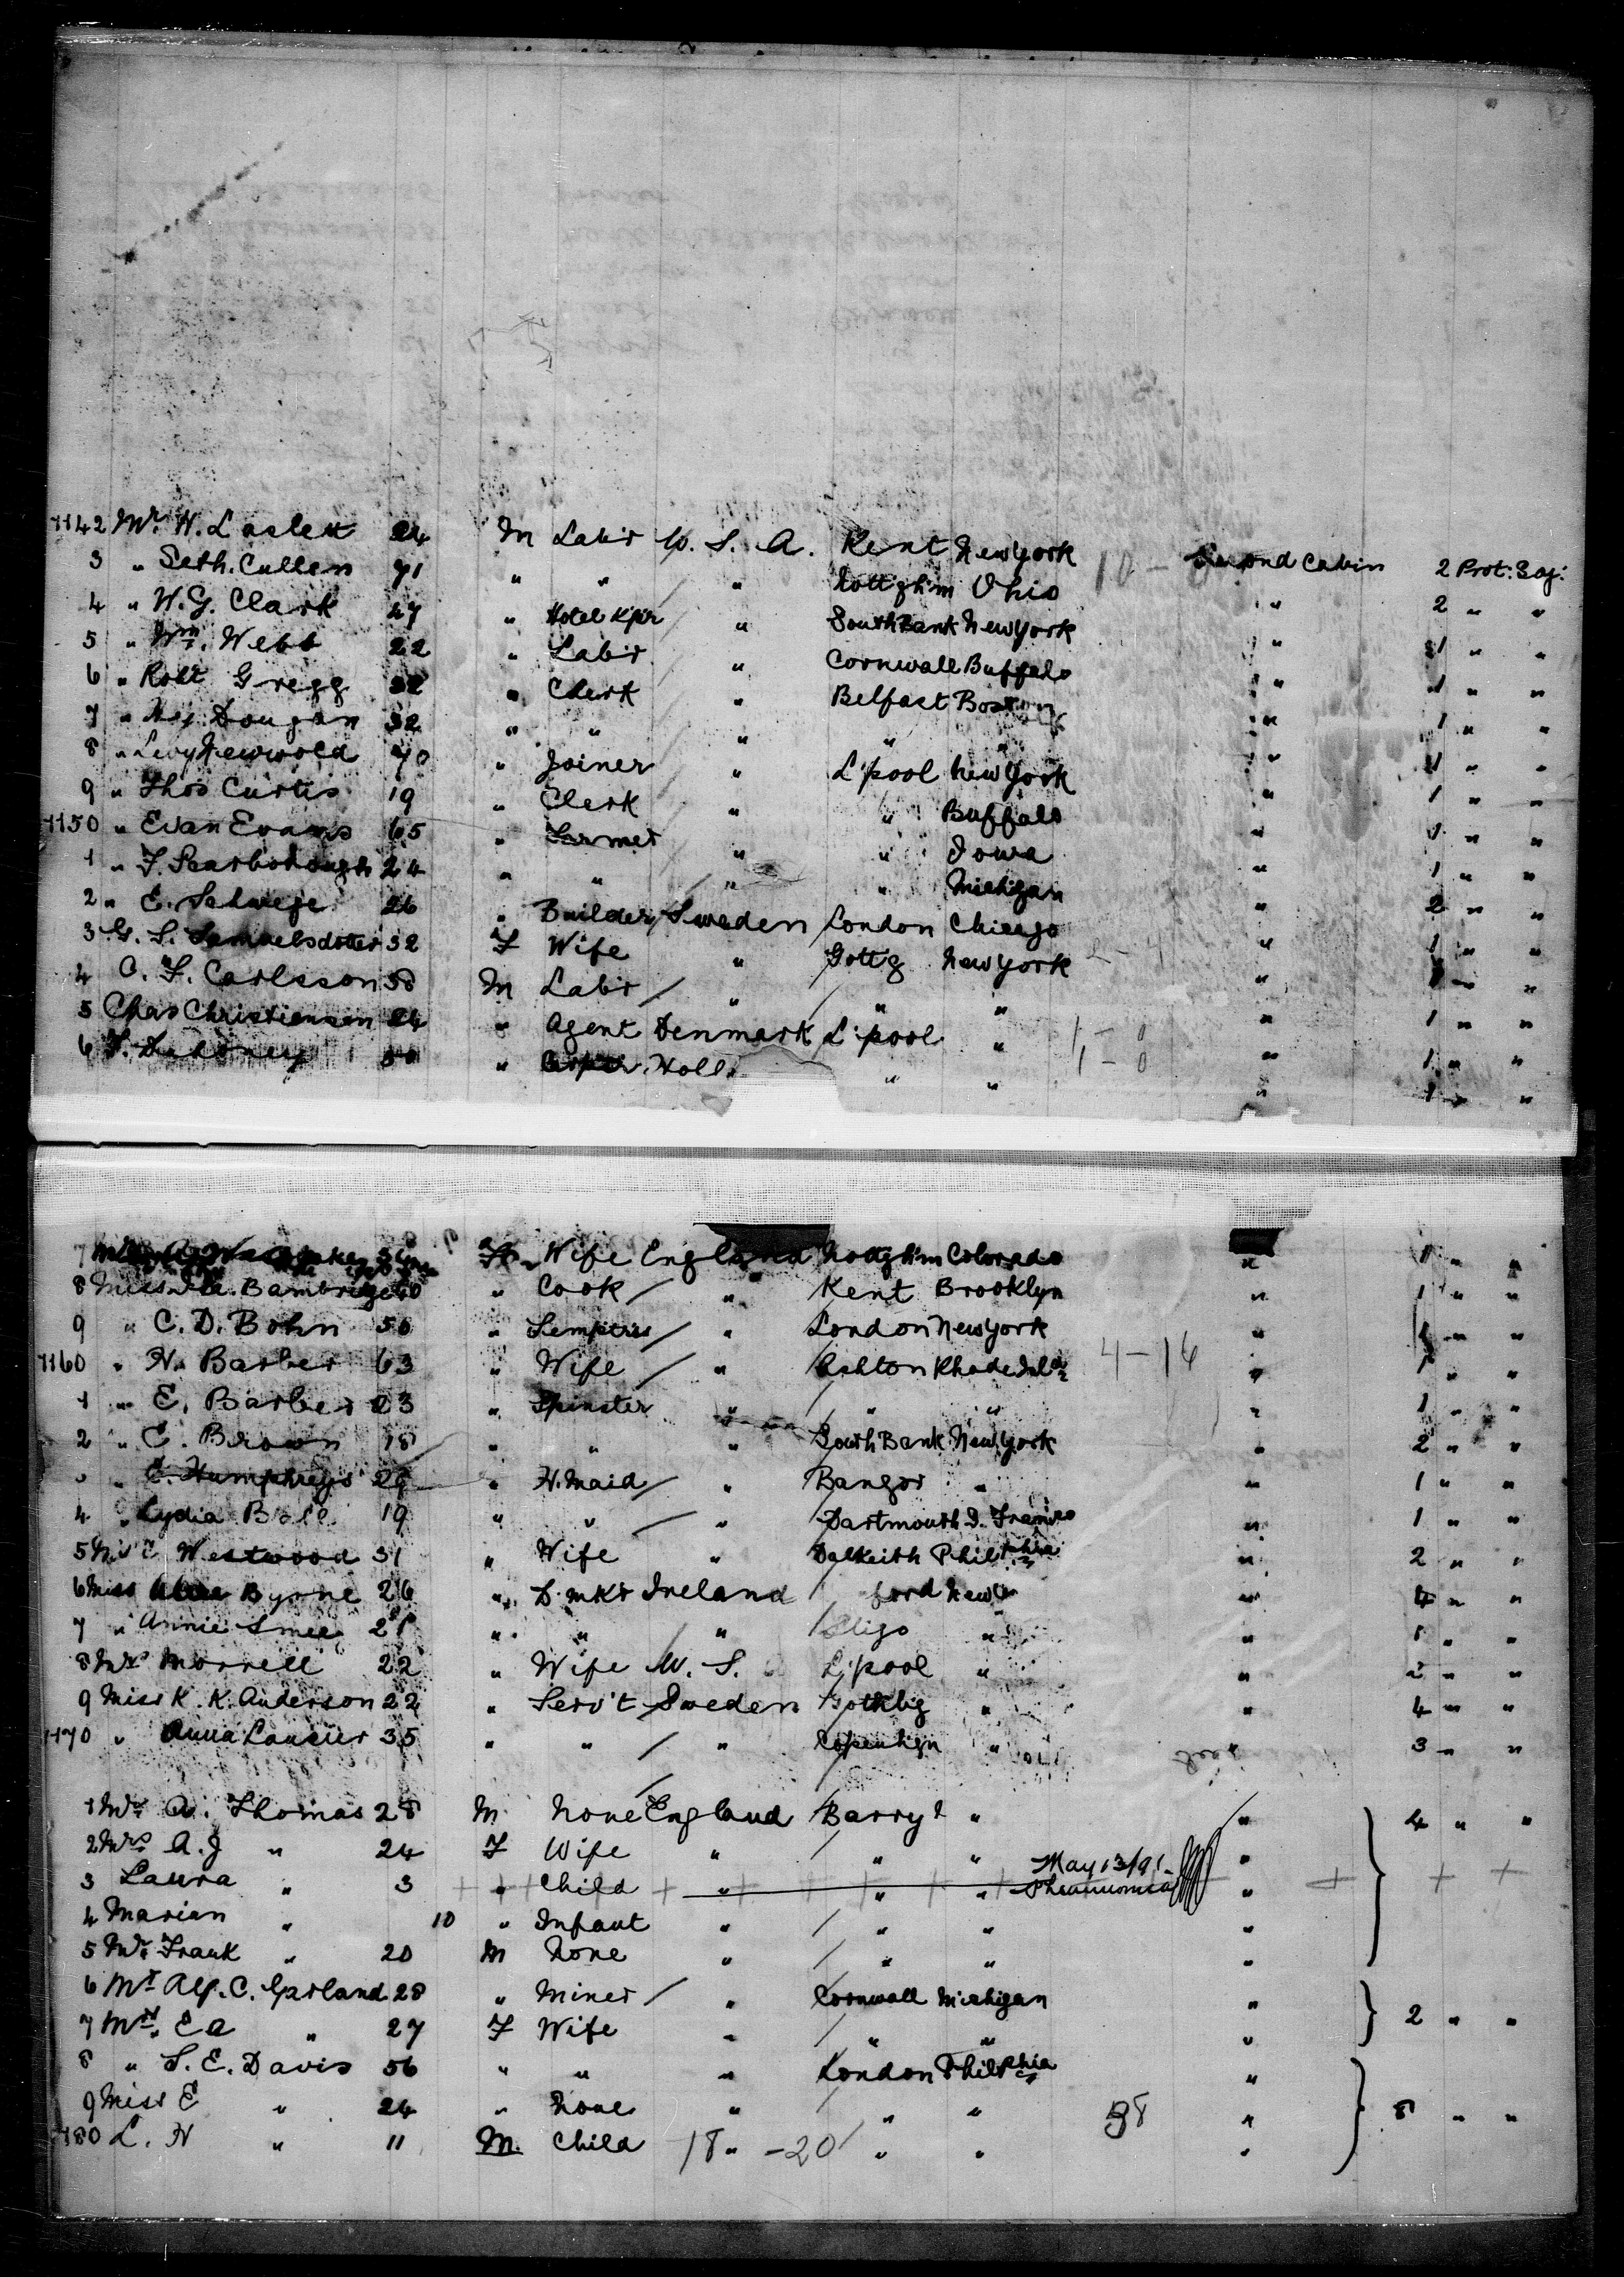 1142 Mr. H. Laslett 24 M Lab'r U. S. A. Kent New York 10 - Second Cabin 2 Prot: Saj:
3 " Seth. Cullen 71 " " " Nottgh'm Ohio " 2 " "
4 " W. G. Clark 27 " Hotel Kp'r " South Bank New York " 1 " "
5 " Wm. Webb 22 " Lab'r " Cornwall Buffalo " 1 " "
6 " Robt Gregg 32 " Clerk " Belfast Boston " 1 " "
7 " Dougan 32 " " " " " " 1 " "
8 " Levy Newwold 40 " Joiner " L'pool New York " 1 " "
9 " Thos Curtis 19 " Clerk " " Buffalo " 1 " "
1150 " Evan Evans 65 " Farmer " " Iowa " 1 " "
1 " F. Scarborough 24 " " " " Michigan " 2 " "
2 " E. Salwege 26 " Builder Sweden London Chicago " 1 " "
3 G. S. Samuelsdotter 32 F Wife " Gottg New York " 1 " "
4 C. F. Carlsson 58 M Lab'r " " " " 1 " "
5 Chas Christiensen 24 " Agent Denmark L'pool " 1 - 0 " 1 " "
6 " Holl. " " " 1 " "
7 Wife England Nottgh'm Colorado " 1 " "
8 Miss Bambridge " Cook " Kent Brooklyn " 1 " "
9 " C. D. Bohn 50 " Semptris " London New York " 1 " "
1160 " H. Barber 63 " Wife " Ashton Rhode Isld 4 - 16 " 1 " "
1 " E. Barber 23 " Spinster " " " " 1 " "
2 " C. Brown 18 " " " South Bank New York " 2 " "
" C. Humphreys 29 " H. Maid " Bangor " " 1 " "
4 " Lydia Ball 19 " " " Dartmouth S. Francisco " 1 " "
5 Mrs C Westwood 31 " Wife " Dalkeith Philphia " 2 " "
6 Miss Byrne 26 " D. mkr Ireland ford New " 4 " "
7 " Annie Smee 21 " " " Sligo " " 1 " "
8 Mrs Morrell 22 " Wife U. S. L'pool " " 2 " "
9 Miss K. K. Anderson 22 " Serv't Sweden Gothbg " " 4 " "
1170 " Anna Lausier 35 " " " Copenhgn " " 3 " "
1 Mr. A. Thomas 28 M. None England Barry " " 4 " "
2 Mrs A. J " 24 F Wife " " " May 13/91 - "
3 Laura " 3 " Child " " " Pheunmonia "
4 Marian " 10 " Infant " " " "
5 Mr. Frank " 20 M None " " " "
6 Mr Alf. C. Garland 28 " Miner " Cornwall Michigan "
7 Mrs. E a " 27 F Wife " " " " 2 " "
8 " S. E. Davis 56 " " " London Philphia "
9 Miss E " 24 " None " " " 38 " 8 " "
1180 L. H " 11 M. Child 18 " - 20 " " "